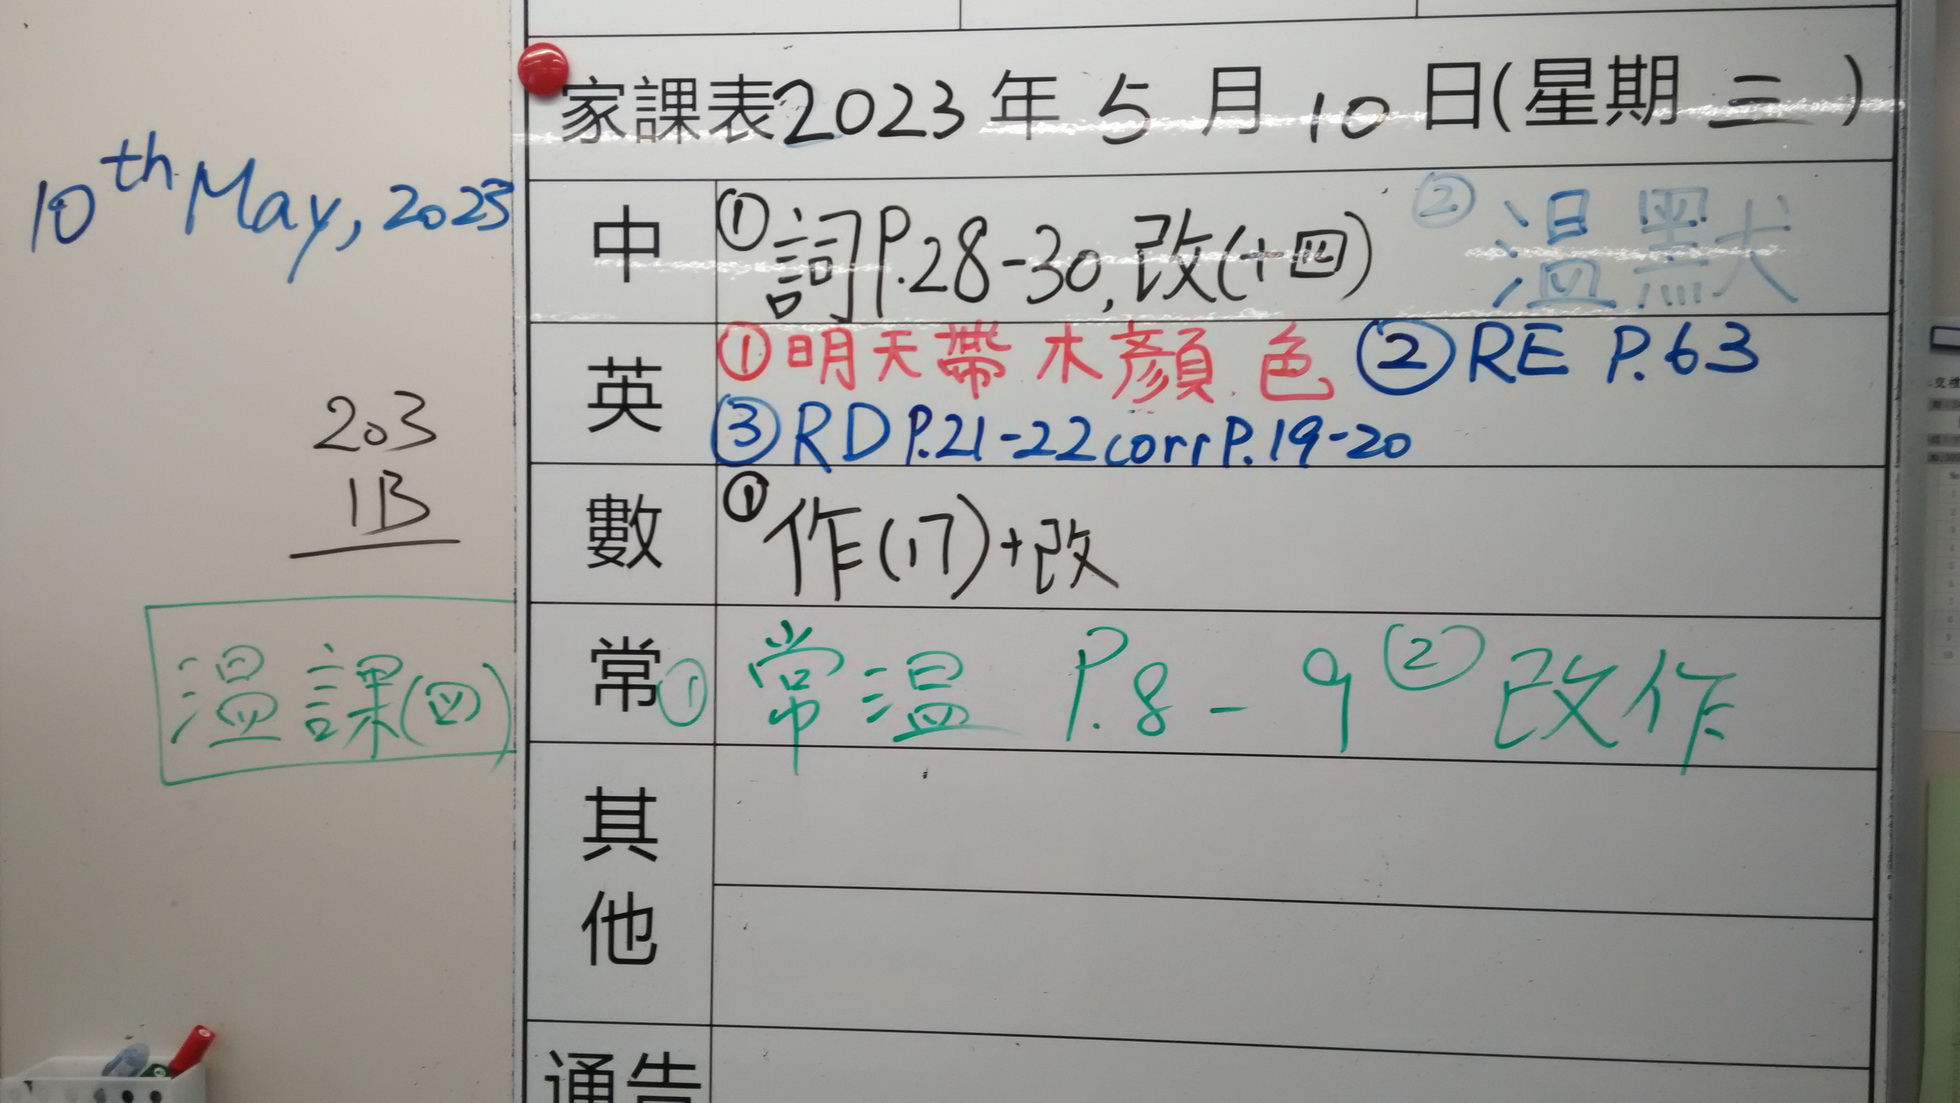 家課表2023年5月10日(星期三)
10th May, 2023
中 ①詞P.28-30,改(十四) ②溫默犬
英 ①明天帶木顏色 ②RE P.63
③RD P.21-22 corr P.19-20
203
1B
數 ①作(17)+改
常 ①常溫 P.8-9 ②改作
溫課(四)
其他
通告